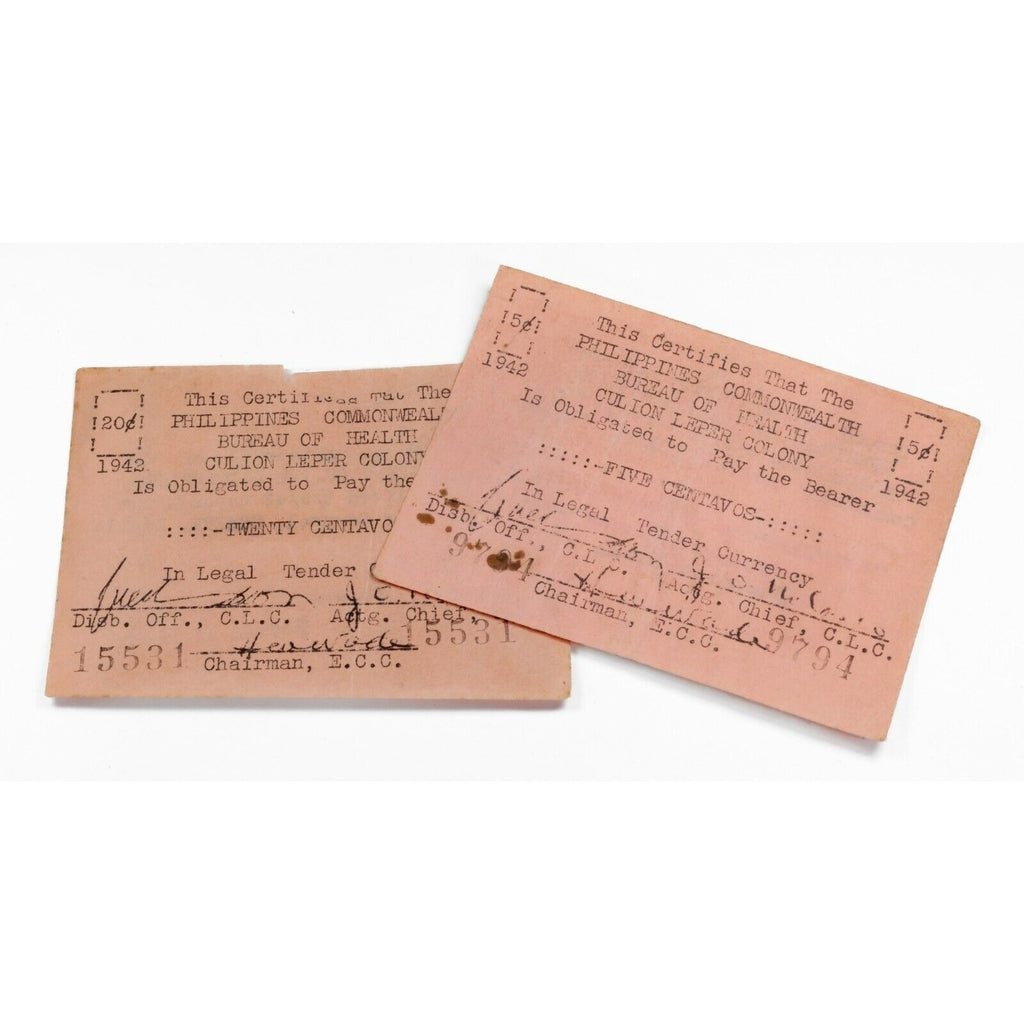 !20¢!
1942
This Certifies That The
PHILIPPINES COMMONWEAL
BUREAU OF HEALTH
CULION LEPER COLONY
Is Obligated to Pay the
::::-TWENTY CENTAVO
In Legal Tender
Disb. Off., C.L.C. Actg. Chief,
15531 15531
Chairman, E.C.C.
!5¢!
1942
This Certifies That The
PHILIPPINES COMMONWEALTH
BUREAU OF HEALTH
CULION LEPER COLONY
Is Obligated to Pay the Bearer
!5¢!
1942
:::::-FIVE CENTAVOS-:::::
In Legal Tender Currency
Disb. Off., C.L.C. Actg. Chief, C.L.C.
9794 9794
Chairman, E.C.C.